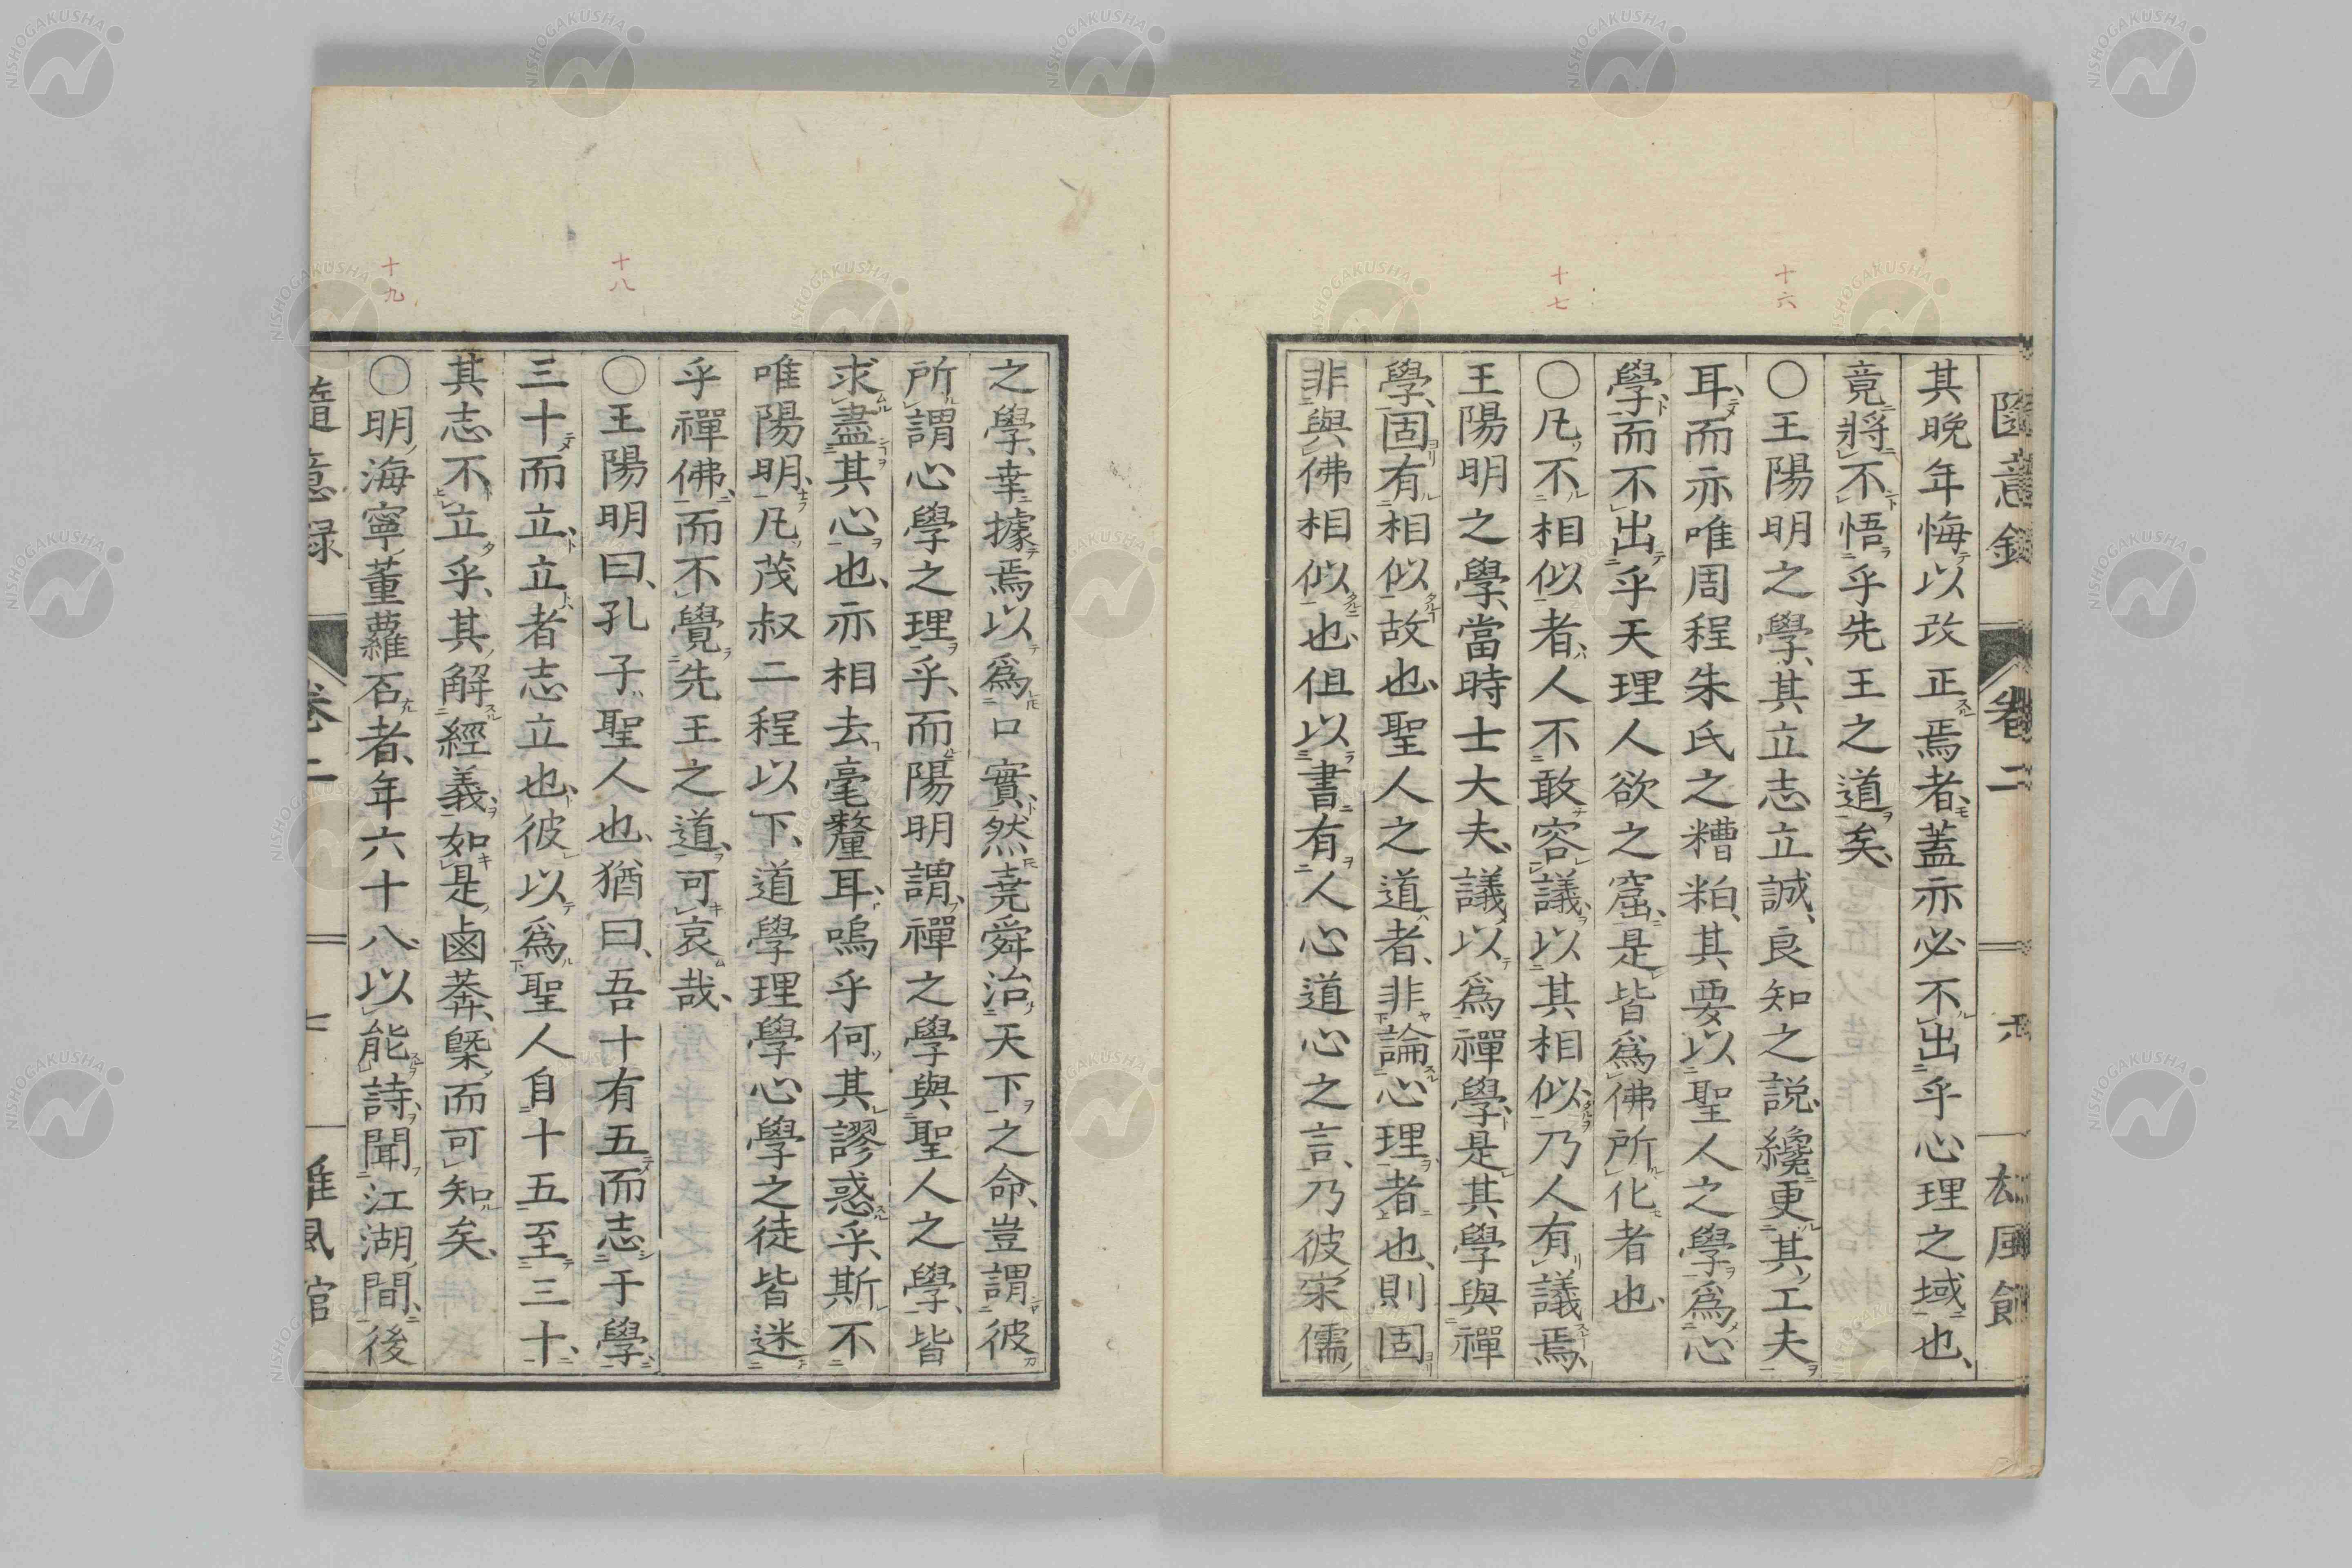 十六
十七
隨意錄 卷二 雄風館
其晩年悔以改正焉者、蓋亦必不出乎心理之域也、
竟將不悟乎先王之道矣、
〇王陽明之學、其立志立誠、良知之説、纔更其工夫
耳、而亦唯周程朱氏之糟粕、其要以聖人之學爲心
學、而不出乎天理人欲之窟、是皆爲佛所化者也、
〇凡不相似者、人不敢容議、以其相似、乃人有議焉、
王陽明之學、當時士大夫、議以爲禪學、是其學與禪
學、固有相似故也、聖人之道者、非論心理者也、則固
非與佛相似也、但以書有人心道心之言、乃彼宋儒
十八
十九
之學、幸據焉以爲口實、然堯舜治天下之命、豈謂彼
所謂心學之理乎、而陽明謂、禪之學與聖人之學、皆
求盡其心也、亦相去毫釐耳、嗚乎何其謬惑乎、斯不
唯陽明、凡茂叔二程以下、道學理學心學之徒皆迷
乎禪佛、而不覺先王之道、可哀哉、
〇王陽明曰、孔子聖人也、猶曰、吾十有五而志于學、
三十而立、立者志立也、彼以爲聖人自十五至三十、
其志不立乎、其解經義、如是鹵莽、槩而可知矣、
〇明海寧董蘿石者、年六十八、以能詩聞江湖間、後
隨意録 卷二 十 雄風館
NISHOGAKUSHA